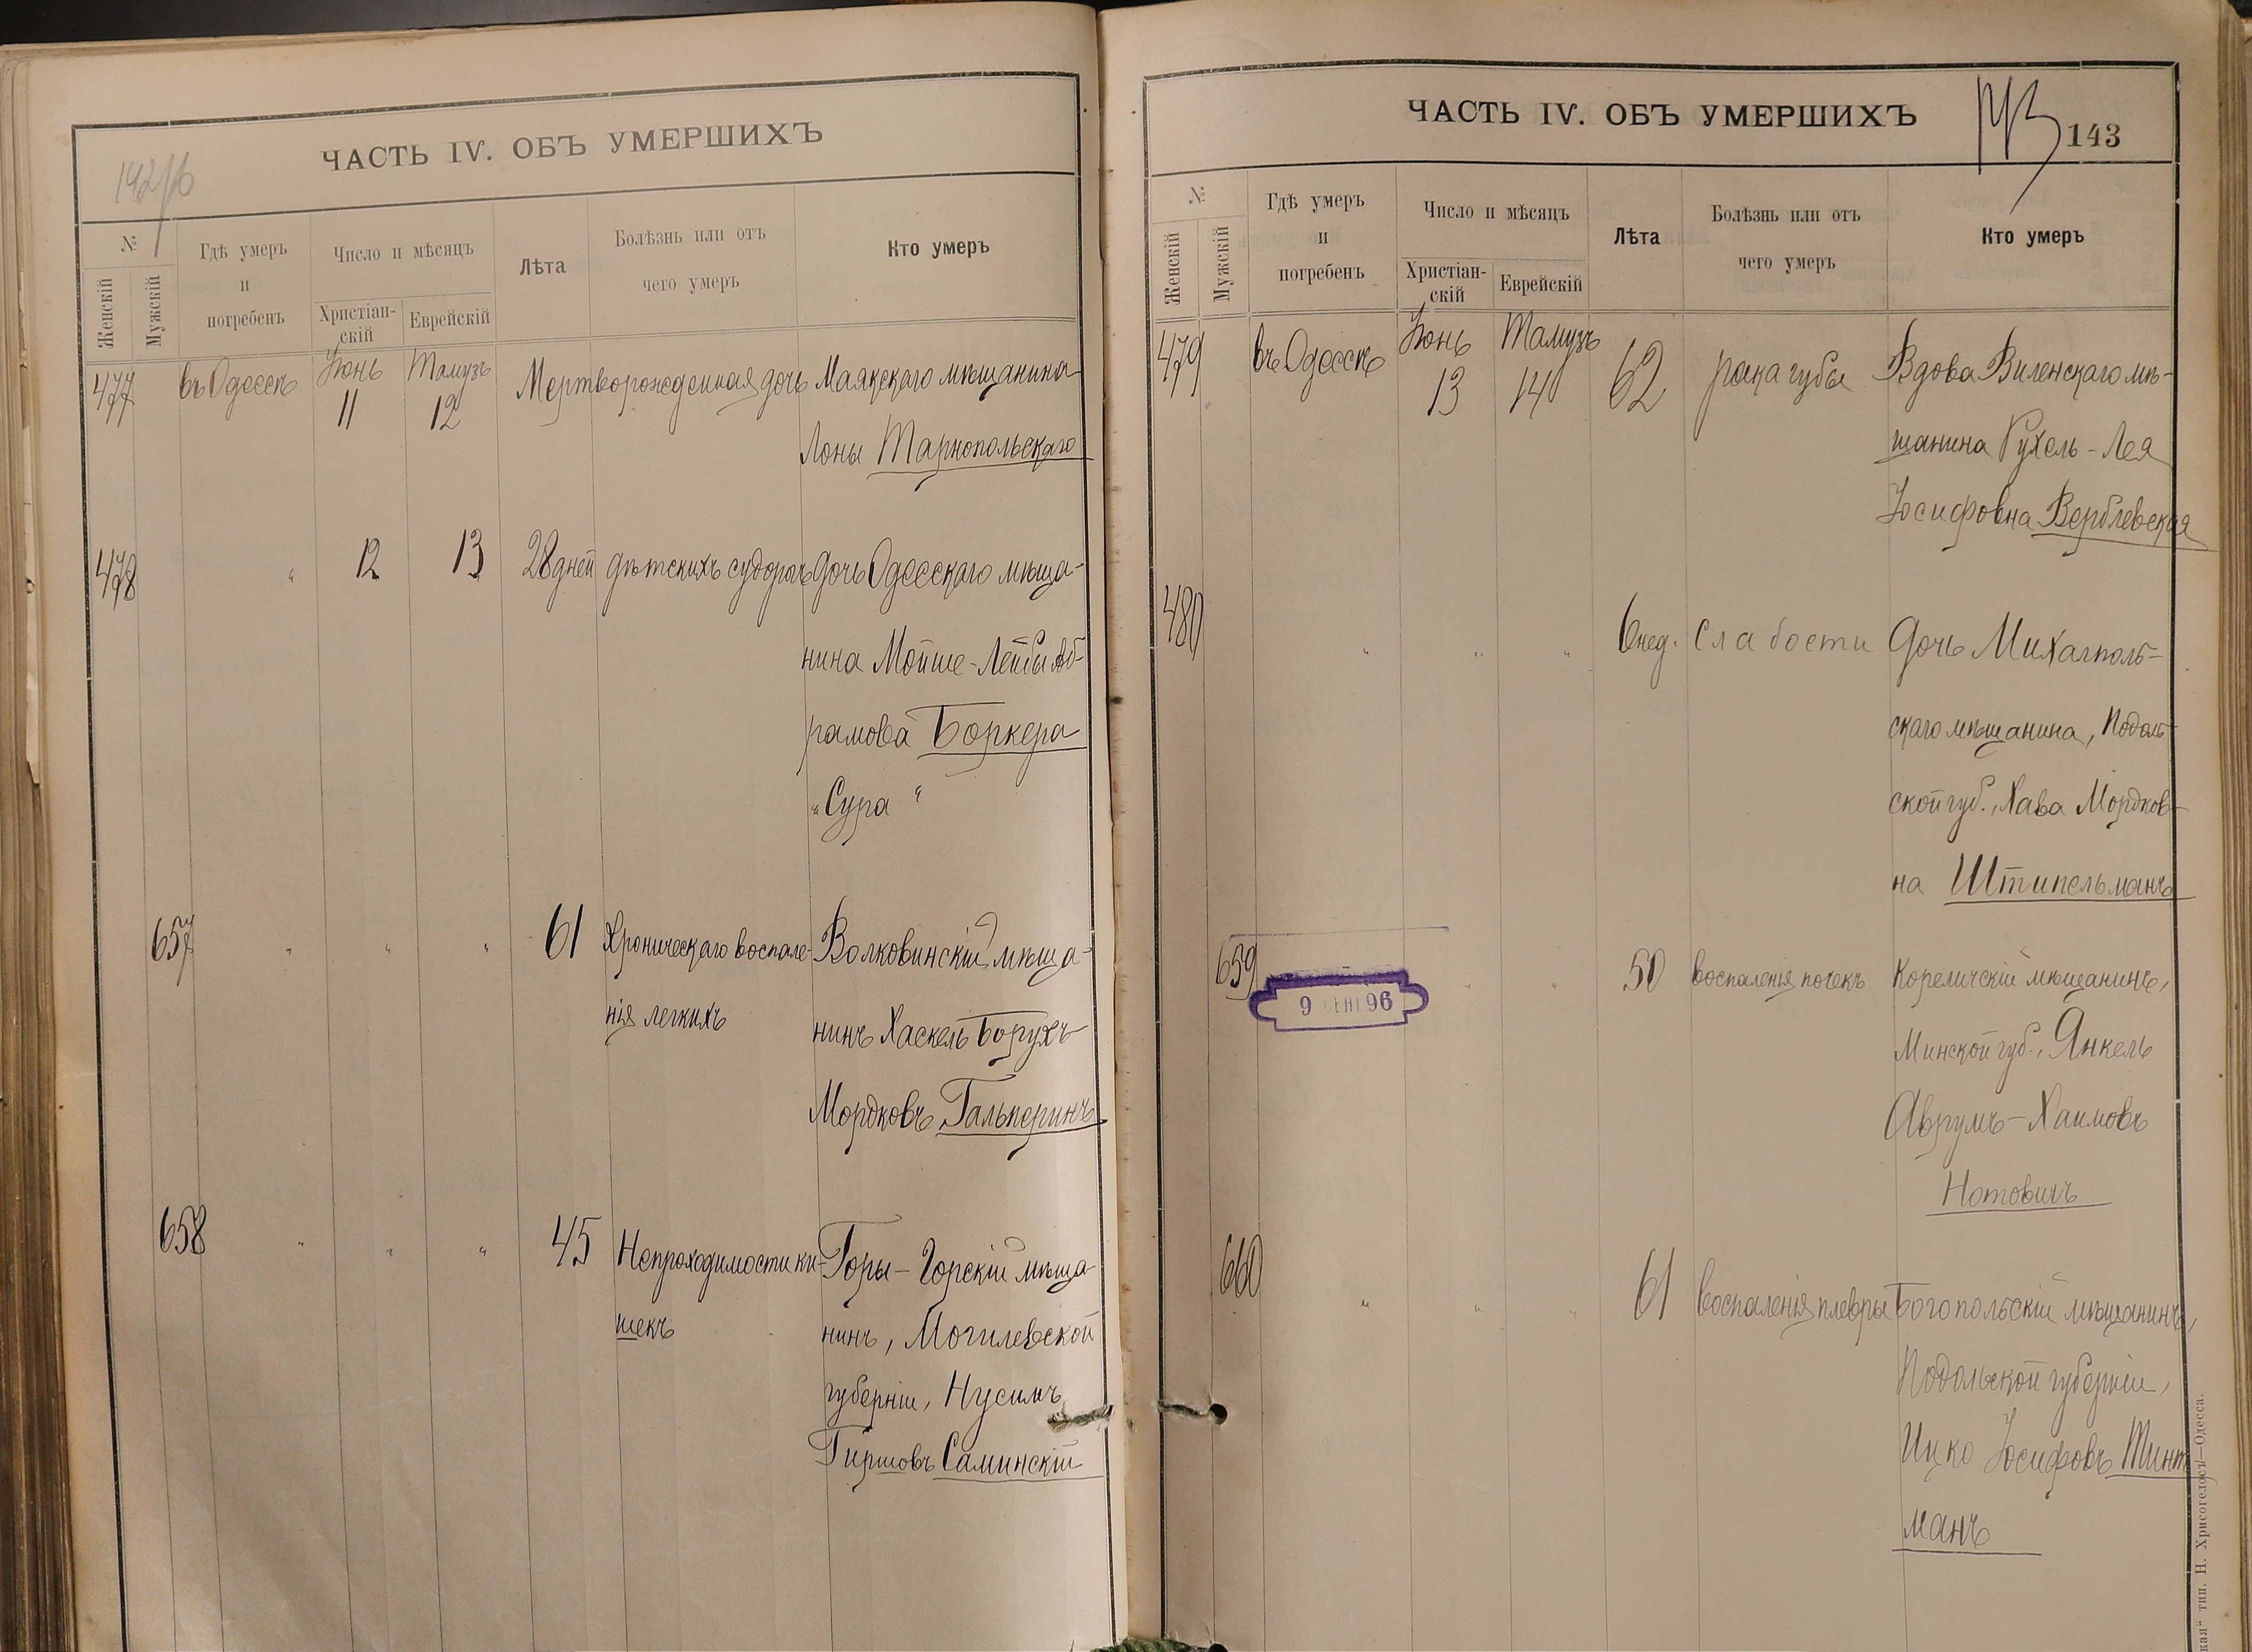 142/б
ЧАСТЬ IV. ОБЪ УМЕРШИХЪ
№
Женскій
Мужскій
Гдѣ умеръ
и
погребенъ
Число и мѣсяцъ
Христіан-
скій
Еврейскій
Лѣта
Болѣзнь или отъ
чего умеръ
Кто умеръ
477 въ Одессѣ Іюнь 11 Тамузъ 12 Мертворожденная дочь Маякскаго мѣщанина
Іоны Тарнопольскаго
478 " 12 13 28 дней дѣтскихъ судорогъ дочь Одесскаго мѣща-
нина Мойше-Лейбы Аб-
рамова Боркера
"Сура"
657 " " " 61 Хроническаго воспале- Волковинскій мѣща-
нія легкихъ нинъ Хаскель Борухъ
Мордковъ Гальперинъ
658 " " " 45 Непроходимости ки- Горы-Горскій мѣща-
шекъ нинъ, Могилевской
губерніи, Нусимъ
Гиршовъ Саминскій
ЧАСТЬ IV. ОБЪ УМЕРШИХЪ
143 143
№
Женскій
Мужскій
Гдѣ умеръ
и
погребенъ
Число и мѣсяцъ
Христіан-
скій
Еврейскій
Лѣта
Болѣзнь или отъ
чего умеръ
Кто умеръ
479 въ Одессѣ Іюнь 13 Тамузъ 14 62 рака губы Вдова Виленскаго мѣ-
щанина Рухель-Лея
Іосифовна Верблевская
480 " " " 6 нед. Слабости Дочь Михалполь-
скаго мѣщанина, Подоль-
ской губ., Хава Мордков-
на Штипельманъ
659 " " 50 воспаленія почекъ Кореличскій мѣщанинъ,
9 СЕНТ 96
Минской губ., Янкель
Аврумъ-Хаимовъ
Нотовичъ
660 " " " 61 воспаленія плевры Богопольскій мѣщанинъ,
Подольской губерніи,
Ицко Іосифовъ Тинт
манъ
тип. Н. Хрисогелосъ—Одесса.